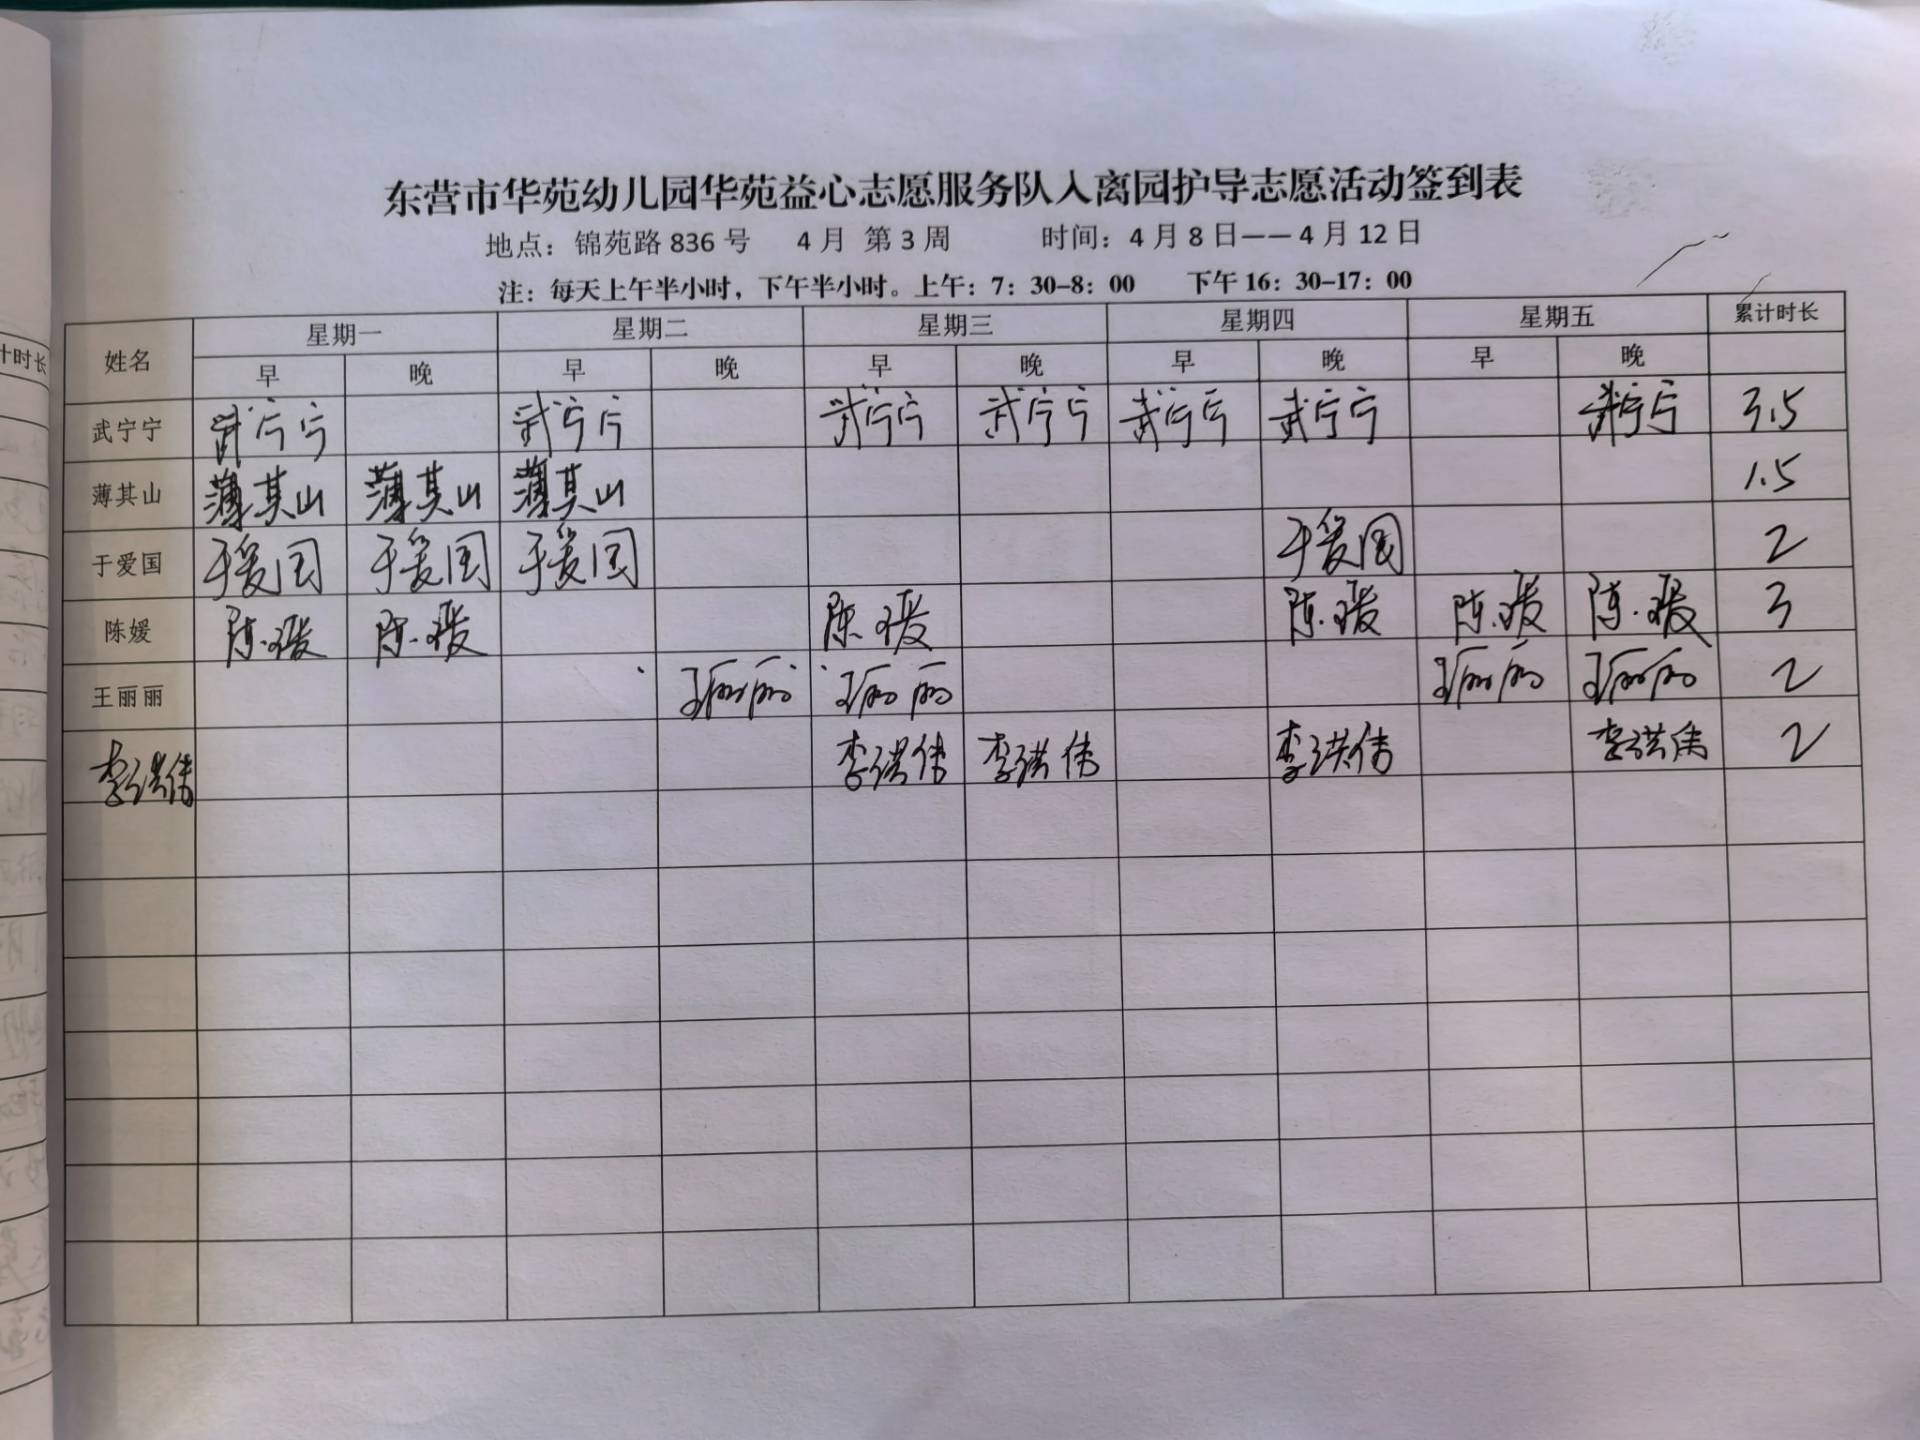 东营市华苑幼儿园华苑益心志愿服务队入离园护导志愿活动签到表
地点：锦苑路 836 号 4 月 第 3 周 时间：4 月 8 日——4 月 12 日
注：每天上午半小时，下午半小时。上午：7：30-8：00 下午 16：30-17：00
姓名 星期一 星期二 星期三 星期四 星期五 累计时长
早 晚 早 晚 早 晚 早 晚 早 晚
武宁宁 武宁宁 武宁宁 武宁宁 武宁宁 武宁宁 武宁宁 武宁宁 3.5
薄其山 薄其山 薄其山 薄其山 1.5
于爱国 于爱国 于爱国 于爱国 于爱国 2
陈媛 陈媛 陈媛 陈媛 陈媛 陈媛 陈媛 3
王丽丽 王丽丽 王丽丽 王丽丽 王丽丽 2
李洪伟 李洪伟 李洪伟 李洪伟 李洪伟 2
计时长